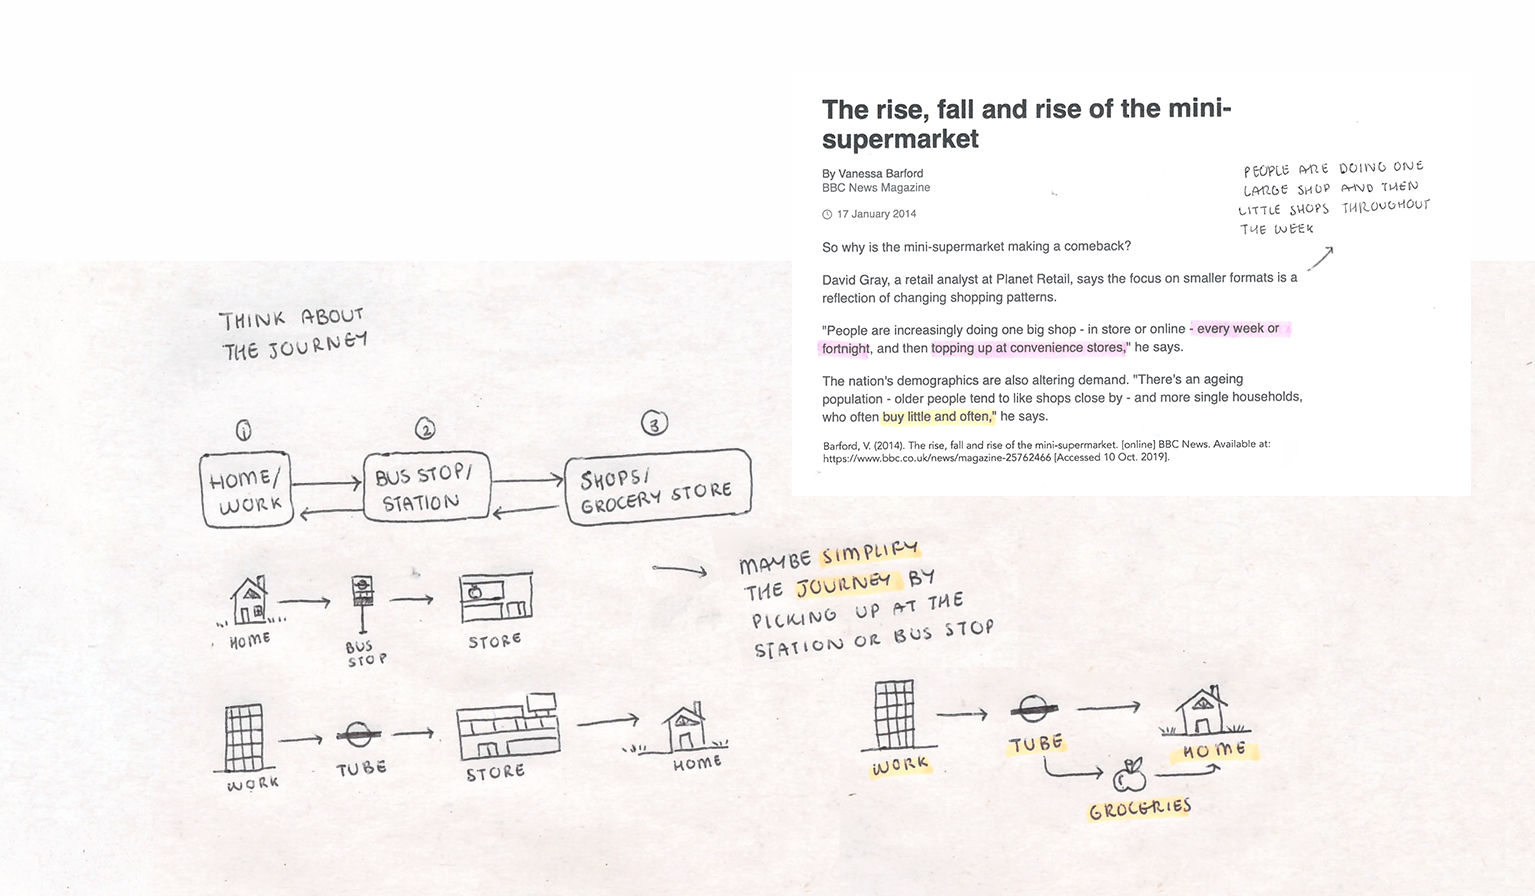 The rise, fall and rise of the mini-
supermarket
By Vanessa Barford
BBC News Magazine
17 January 2014
PEOPLE ARE DOING ONE
LARGE SHOP AND THEN
LITTLE SHOPS THROUGHOUT
THE WEEK
So why is the mini-supermarket making a comeback?
David Gray, a retail analyst at Planet Retail, says the focus on smaller formats is a
reflection of changing shopping patterns.
"People are increasingly doing one big shop - in store or online - every week or
fortnight, and then topping up at convenience stores," he says.
The nation's demographics are also altering demand. "There's an ageing
population - older people tend to like shops close by - and more single households,
who often buy little and often," he says.
Barford, V. (2014). The rise, fall and rise of the mini-supermarket. [online] BBC News. Available at:
https://www.bbc.co.uk/news/magazine-25762466 [Accessed 10 Oct. 2019].
THINK ABOUT
THE JOURNEY
1
2
3
HOME/
WORK
BUS STOP/
STATION
SHOPS/
GROCERY STORE
HOME
BUS
STOP
STORE
MAYBE SIMPLIFY
THE JOURNEY BY
PICKING UP AT THE
STATION OR BUS STOP
WORK
TUBE
STORE
HOME
WORK
TUBE
HOME
GROCERIES